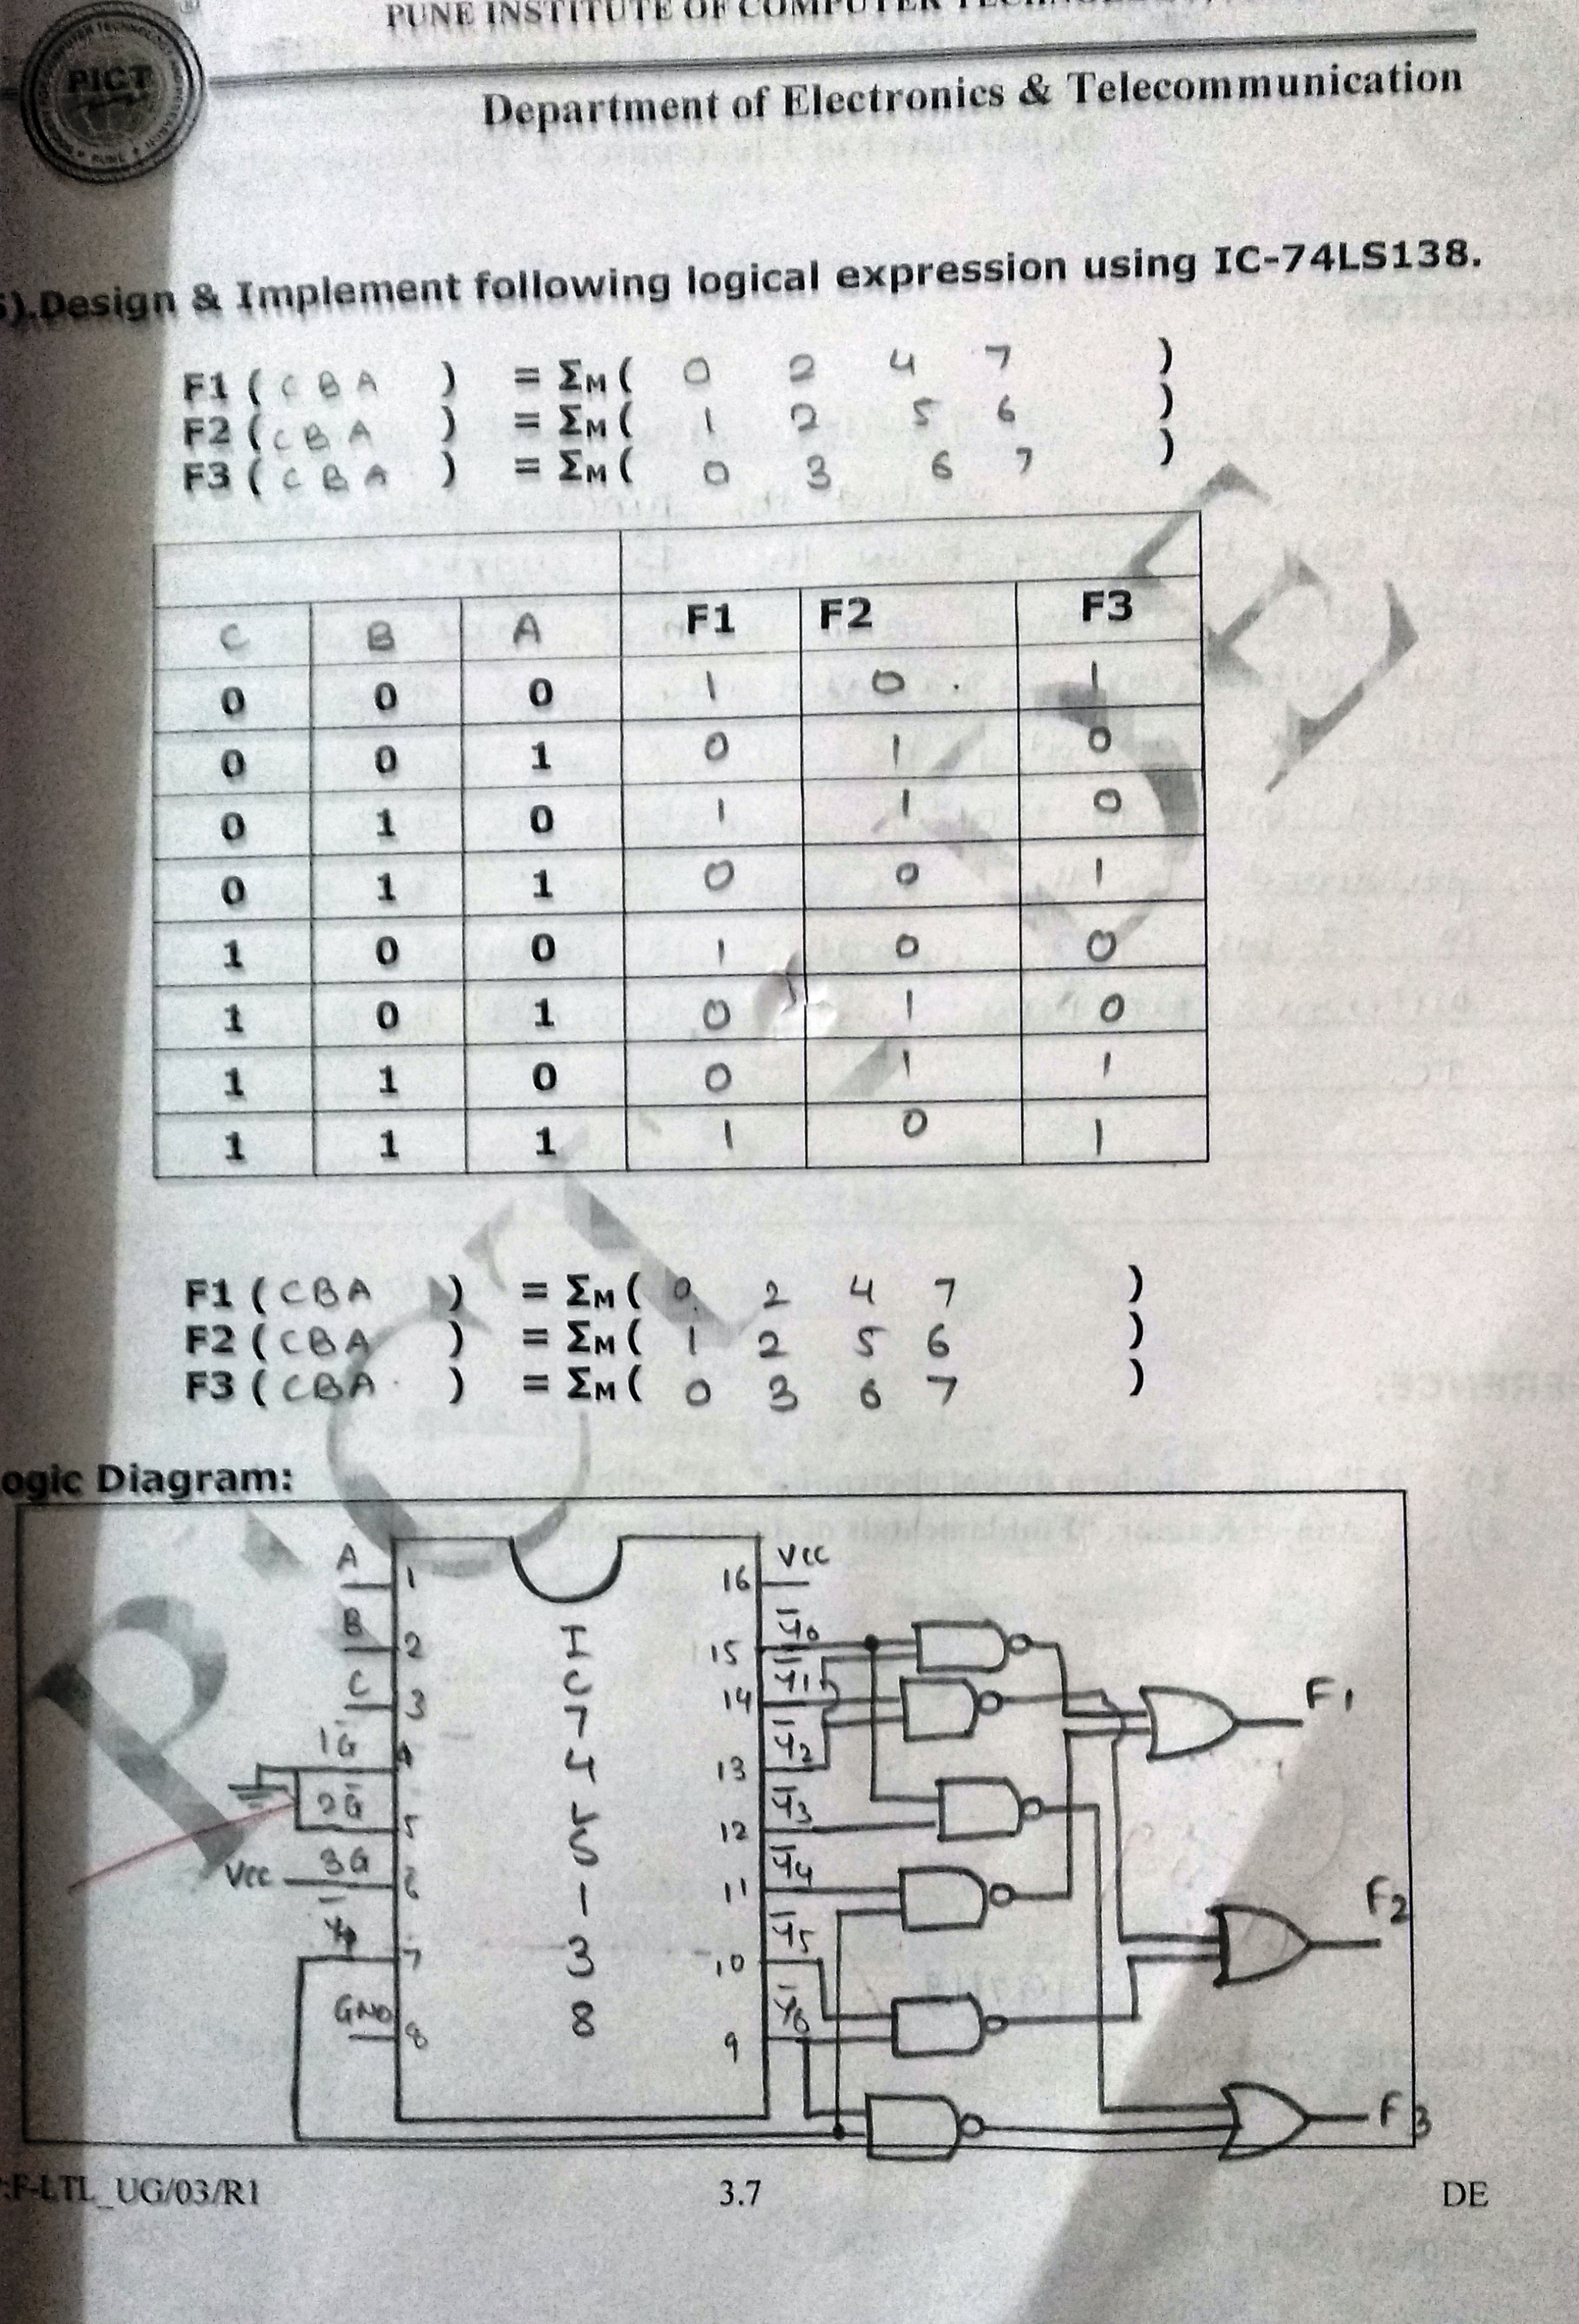 PUNE INSTITUTE OF COMPUTER
PICT
Department of Electronics & Telecommunication
5).Design & Implement following logical expression using IC-74LS138.
F1 ( C B A ) = ΣM ( 0 2 4 7 )
F2 ( C B A ) = ΣM ( 1 2 5 6 )
F3 ( C B A ) = ΣM ( 0 3 6 7 )
C B A F1 F2 F3
0 0 0 1 0 1
0 0 1 0 1 0
0 1 0 1 1 0
0 1 1 0 0 1
1 0 0 1 0 0
1 0 1 0 1 0
1 1 0 0 1 1
1 1 1 1 0 1
F1 ( CBA ) = ΣM ( 0 2 4 7 )
F2 ( CBA ) = ΣM ( 1 2 5 6 )
F3 ( CBA ) = ΣM ( 0 3 6 7 )
ogic Diagram:
A 1 16 Vcc
B 2 I 15 Y̅0
C 3 C 14 Y̅1
1G̅ 4 7 4 13 Y̅2
2G̅ 5 L S 12 Y̅3
Vcc 3G 6 1 11 Y̅4
7 3 10 Y̅5
GND 8 8 9 Y̅6
F1
F2
F3
:F-LTL_UG/03/R1 3.7 DE